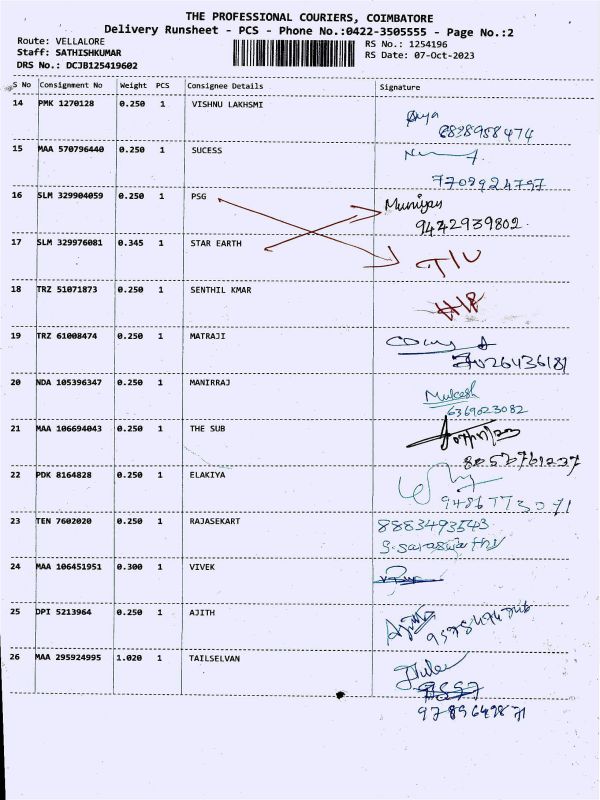 THE PROFESSIONAL COURIERS, COIMBATORE
Delivery Runsheet - PCS - Phone No.:0422-3505555 - Page No.:2
Route: VELLALORE
Staff: SATHISHKUMAR
DRS No.: DCJB125419602
RS No.: 1254196
RS Date: 07-Oct-2023
S No Consignment No Weight PCS Consignee Details Signature
14 PMK 1270128 0.250 1 VISHNU LAKHSMI
15 MAA 570796440 0.250 1 SUCESS
7709924797
16 SLM 329904059 0.250 1 PSG Muniyas
9442939802
17 SLM 329976081 0.345 1 STAR EARTH
18 TRZ 51071873 0.250 1 SENTHIL KMAR
19 TRZ 61008474 0.250 1 MATRAJI
20 NDA 105396347 0.250 1 MANIRRAJ Mukesh
6369023082
21 MAA 106694043 0.250 1 THE SUB
22 PDK 8164828 0.250 1 ELAKIYA
23 TEN 7602020 0.250 1 RAJASEKART 8883493543
S.Saraswathy
24 MAA 106451951 0.300 1 VIVEK
25 DPI 5213964 0.250 1 AJITH Ajith
26 MAA 295924995 1.020 1 TAILSELVAN